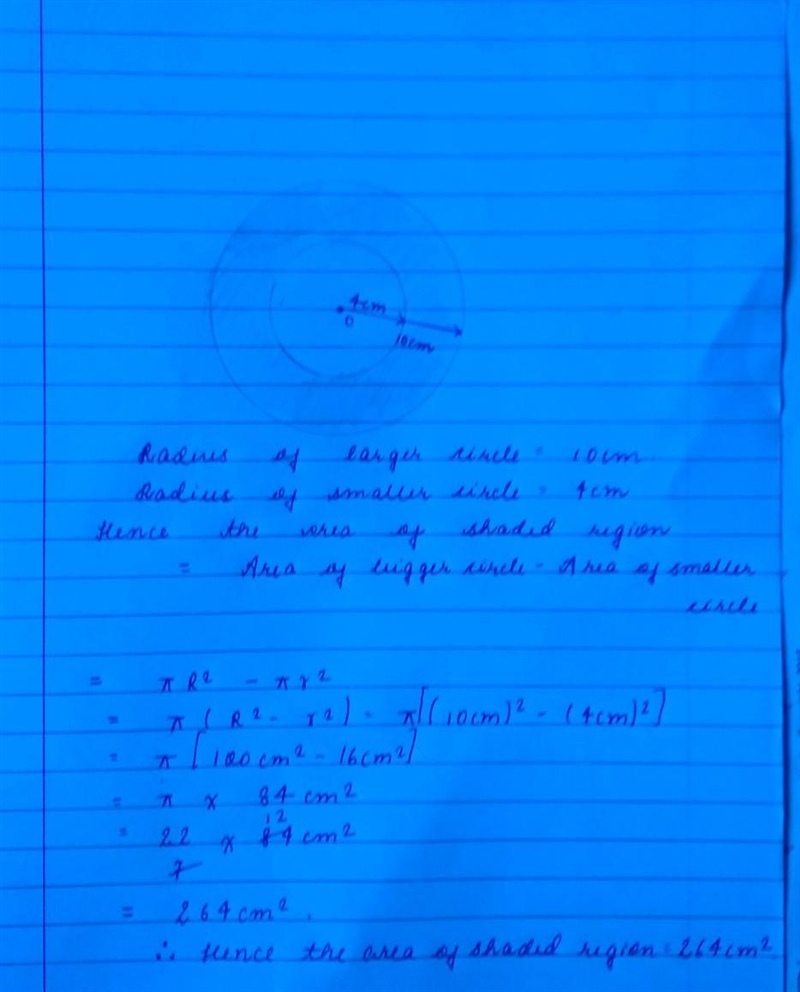 4cm
O
10cm
Radius of larger circle = 10cm
Radius of smaller circle = 4cm
Hence the area of shaded region
= Area of bigger circle - Area of smaller
circle
= π R² - π r²
= π ( R² - r² ) = π[(10cm)² - (4cm)²]
= π [100cm² - 16cm²]
= π x 84 cm²
12
= 22 x 84 cm²
7
= 264cm².
∴ Hence the area of shaded region = 264cm²